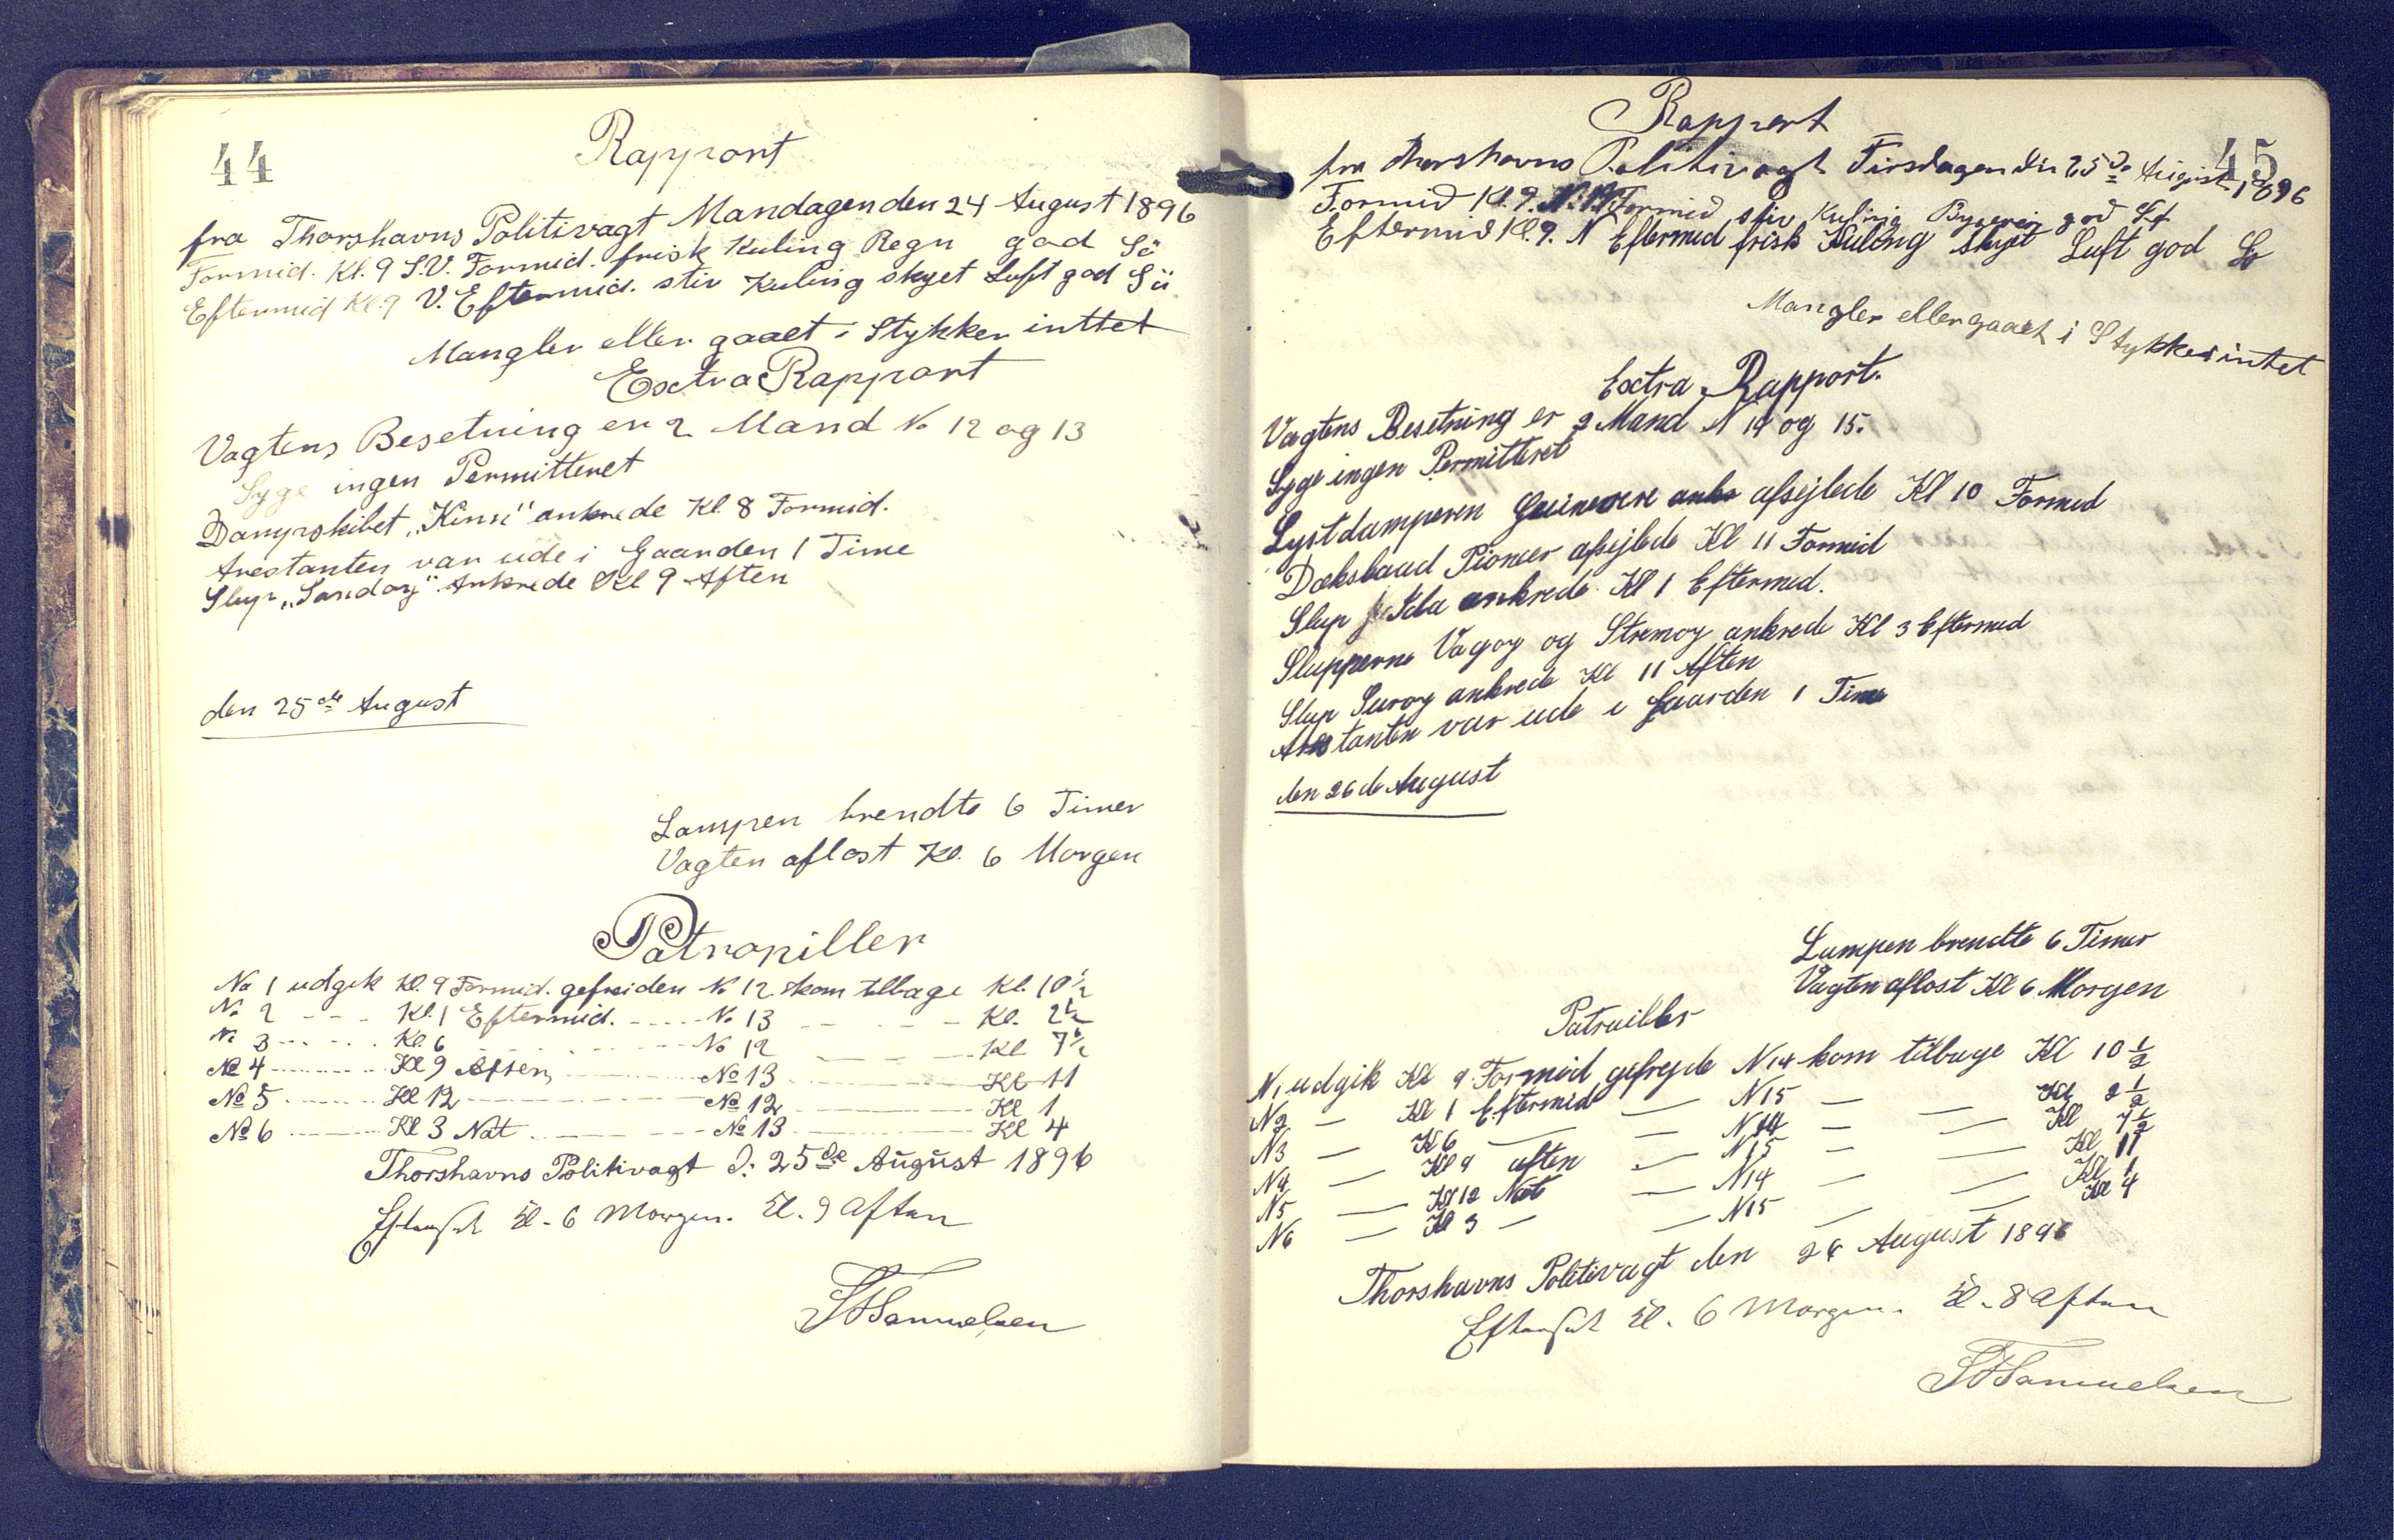 44
Rapport
fra Thorshavns Politivagt Mandagen den 24 August 1896
Formid. Kl. 9 S.V. Formid. frisk Kuling Regn god Sö
Eftermid Kl. 9 V. Eftermid. stiv Kuling skyet Luft god Sö
Mangler eller gaaet i Stykker inttet
Extra Rapport
Vagtens Besetning er 2 Mand No 12 og 13
Syge ingen Permitteret
Dampskibet „Kinsi" ankrede Kl. 8 Formid.
Arestanten var ude i Gaarden 1 Time
Slup „Sandoy" Ankrede Kl 9 Aften
den 25de August
Lampen brendte 6 Timer
Vagten aflost Kl. 6 Morgen
Patropiller
No 1 udgik Kl. 9 Formid. gefreiden No 12 kom tilbage Kl. 10 1/2
No 2 - - - Kl. 1 Eftermid. - - - - No 13 - - - - Kl. 2 1/2
No 3 - - - - Kl. 6 - - - - No 12 - - - - Kl 7 1/2
No 4 - - - - Kl 9 Aften - - - - No 13 - - - - Kl 11
No 5 - - - - Kl 12 - - - - No 12 - - - - Kl 1
No 6 - - - - Kl 3 Nat - - - - No 13 - - - - Kl 4
Thorshavns Politivagt D: 25de August 1896
Efterset Kl. 6 Morgen. Kl. 9 Aften
Samuelsen
45
Rapport
fra Thorshavns Politivagt Tirsdagen den 25de August 1896
Formid Kl. 9. Formid stiv Kuling god
Eftermid Kl. 9. N Eftermid frisk Kuling skyet Luft god So
Mangler eller gaaet i Stykker intet
Extra Rapport.
Vagtens Besetning er 2 Mand N 14 og 15.
Syge ingen Permitteret
Lystdamperen afsejlede Kl 10 Formid
Dæksbaad Pioneer afsejlede Kl 11 Formid
Slup Ida ankrede Kl 1 Eftermid.
Slupperne Vagoy og Stremoy ankrede Kl 3 Eftermid
Slup Suroy ankrede Kl 11 Aften
Arestanten var ude i Gaarden 1 Time
den 26de August
Lampen brendte 6 Timer
Vagten aflost Kl 6 Morgen
Patruiller
N1 udgik Kl 9 Formid gefrejde N14 kom tilbage Kl 10 1/2
N2 — Kl 1 Eftermid — N15 — — Kl 2 1/2
N3 — Kl 6 — — N14 — — Kl 7 1/2
N4 — Kl 9 aften — N15 — — Kl 11
N5 — Kl 12 Nat — N14 — — Kl 1
N6 — Kl 3 — — N15 — — Kl 4
Thorshavns Politivagt den 26 August 1896
Efterset Kl. 6 Morgen. Kl. 8 Aften
Samuelsen